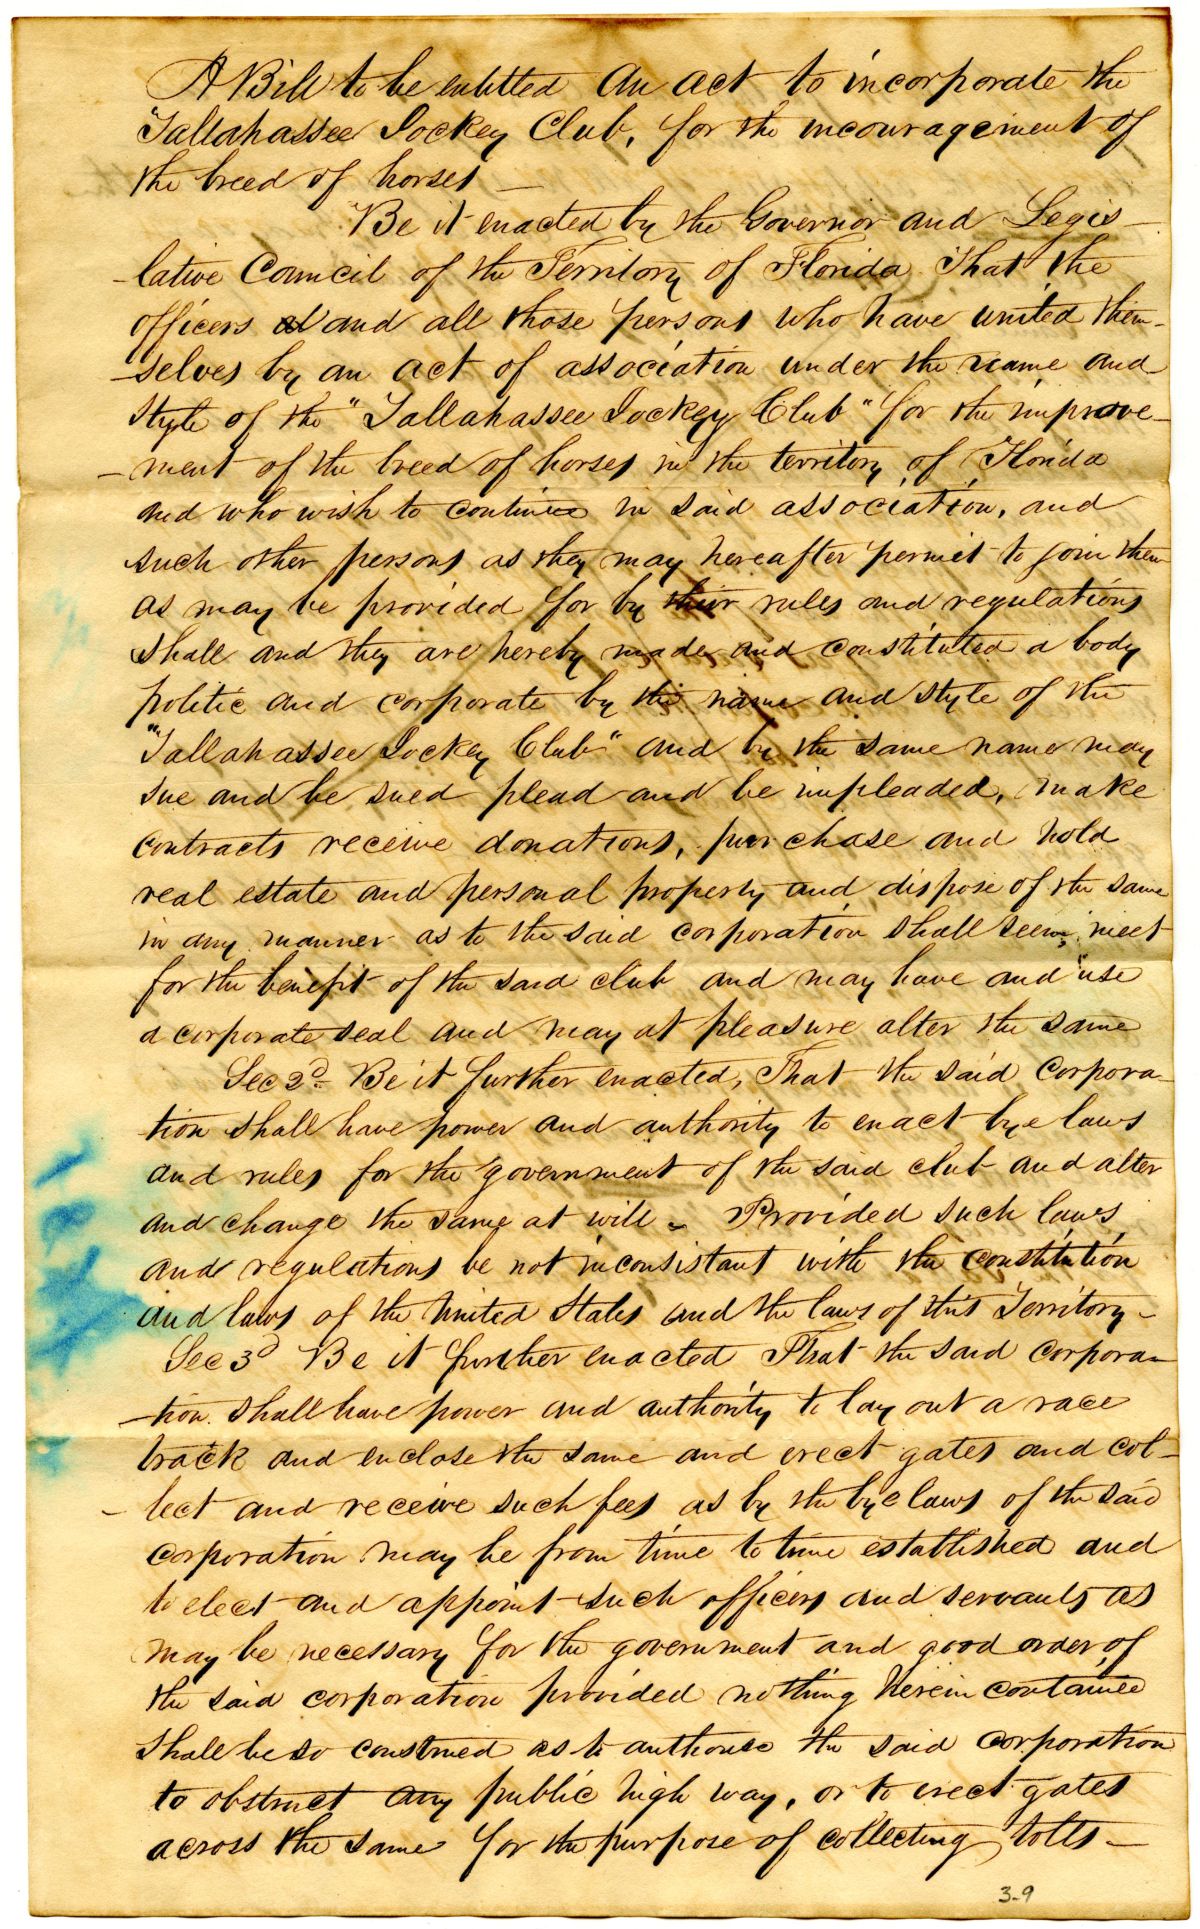 A Bill to be entitled An act to incorporate the
Tallahassee Jockey Club, for the incouragement of
the breed of horses —
Be it enacted by the Governor and Legis-
-lative Council of the Territory of Florida That the
officers and all those persons who have united them-
-selves by an act of association under the name and
Style of the "Tallahassee Jockey Club" for the improve-
-ment of the breed of horses in the territory of Florida
and who wish to continue in said association, and
such other persons as they may hereafter permit to join them
as may be provided for by their rules and regulations
shall and they are hereby made and constituted a body
politic and corporate by the name and style of the
"Tallahassee Jockey Club" and by the same name may
sue and be sued plead and be impleaded, make
contracts receive donations, purchase and hold
real estate and personal property and dispose of the same
in any manner as to the said corporation shall seem meet
for the benefit of the said club and may have and use
a corporate seal and may at pleasure alter the same
Sec 2d Be it further enacted, That the said corpora-
tion shall have power and authority to enact bye laws
and rules for the government of the said club and alter
and change the same at will - Provided such laws
and regulations be not inconsistant with the constitution
and laws of the United States and the laws of this Territory -
Sec 3d Be it further enacted That the said corpora-
-tion shall have power and authority to lay out a race
track and enclose the same and erect gates and col-
-lect and receive such fees as by the bye laws of the said
corporation may be from time to time established and
to elect and appoint such officers and servants as
may be necessary for the government and good order of
the said corporation provided nothing herein contained
shall be so construed as to authorise the said corporation
to obstruct any public high way, or to erect gates
across the same for the purpose of collecting tolls —
3-9